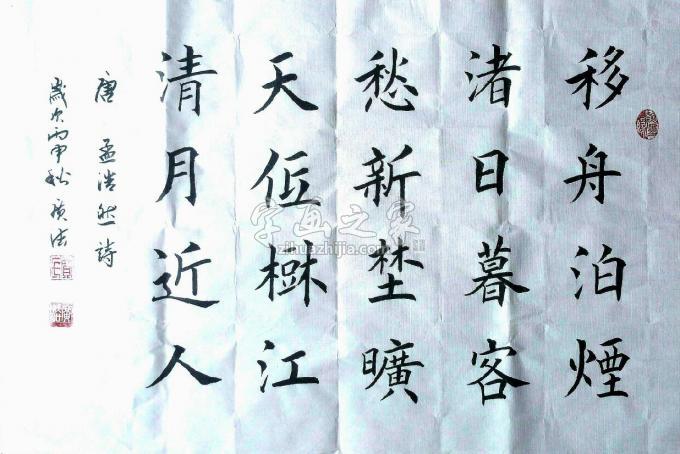 移舟泊煙
渚日暮客
愁新埜曠
天低樹江
清月近人
唐 孟浩然詩
歲次丙申秋 廣法
字画之家
zihuazhijia.com